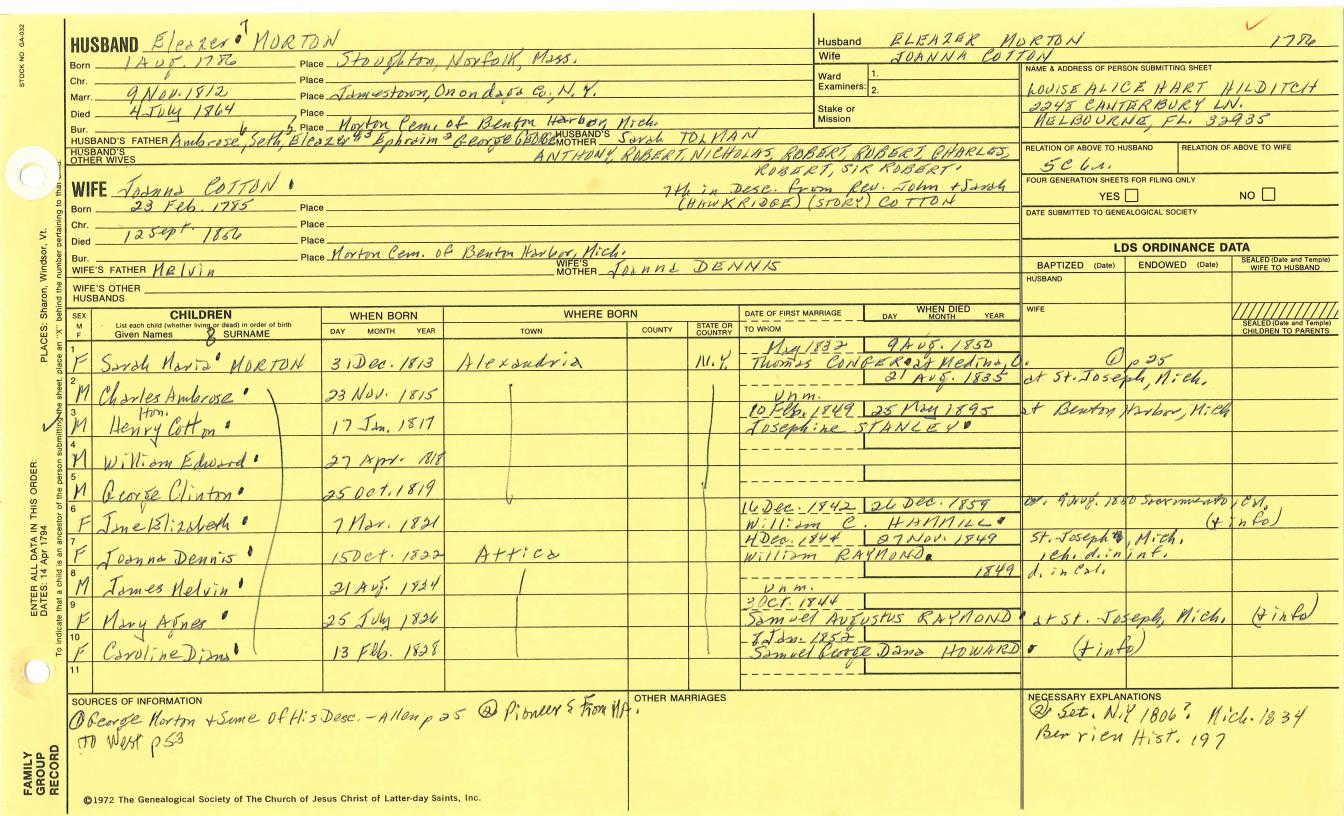 STOCK NO. GA-032
HUSBAND Eleazer 7 MORTON
Born 1 Aug. 1786 Place Stoughton, Norfolk, Mass.
Chr. Place
Marr. 9 Nov. 1812 Place Jamestown, Onondaga Co., N.Y.
Died 4 July 1864 Place
Bur. Place Morton Cem. of Benton Harbor, Mich.
HUSBAND'S FATHER Ambrose, 6 Seth, 5 Eleazer Ephraim 2 George HUSBAND'S MOTHER Sarah TOLMAN
HUSBAND'S OTHER WIVES
ANTHONY, ROBERT, NICHOLAS, ROBERT, ROBERT, CHARLES,
ROBERT, SIR ROBERT.
WIFE Joanna COTTON
7th in Desc. from Rev. John + Sarah
(HAWKRIDGE) (STORY) COTTON
Born 23 Feb. 1785 Place
Chr. Place
Died 12 Sept. 1866 Place
Bur. Place Morton Cem. of Benton Harbor, Mich.
WIFE'S FATHER Melvin WIFE'S MOTHER Joanna DENNIS
WIFE'S OTHER HUSBANDS
Husband ELEAZER MORTON 1786
Wife JOANNA COTTON
Ward Examiners: 1. 2.
Stake or Mission
NAME & ADDRESS OF PERSON SUBMITTING SHEET
LOUISE ALICE HART HILDITCH
2248 CANTERBURY LN.
MELBOURNE, FL. 32935
RELATION OF ABOVE TO HUSBAND RELATION OF ABOVE TO WIFE
5C 6r.
FOUR GENERATION SHEETS FOR FILING ONLY
YES NO
DATE SUBMITTED TO GENEALOGICAL SOCIETY
LDS ORDINANCE DATA
BAPTIZED (Date) ENDOWED (Date) SEALED (Date and Temple) WIFE TO HUSBAND
HUSBAND
WIFE
SEALED (Date and Temple) CHILDREN TO PARENTS
SEX M F CHILDREN WHEN BORN WHERE BORN DATE OF FIRST MARRIAGE WHEN DIED
List each child (whether living or dead) in order of birth
Given Names 8 SURNAME DAY MONTH YEAR TOWN COUNTY STATE OR COUNTRY TO WHOM DAY MONTH YEAR
May 1832 9 Aug. 1850
1 F Sarah Maria MORTON 31 Dec. 1813 Alexandria N.Y. Thomas CONGER at Medina, O. ① p 25
21 Aug. 1835 at St. Joseph, Mich.
2 M Charles Ambrose 23 Nov. 1815 unm.
10 Feb. 1849 25 May 1895 at Benton Harbor, Mich
3 M Hon. Henry Cotton 17 Jan. 1817 Josephine STANLEY
4 M William Edward 27 Apr. 1818
5 M George Clinton 25 Oct. 1819
16 Dec. 1842 26 Dec. 1859 or 9 Aug. 1860 Sacramento, Cal.
6 F Jane Elizabeth 7 Mar. 1821 William C. HAMMILL (+ info)
4 Dec. 1844 27 Nov. 1849 St. Joseph, Mich.
7 F Joanna Dennis 15 Oct. 1822 Attica William RAYMOND. 1 ch. d. in inf.
1849 d. in Cal.
8 M James Melvin 21 Aug. 1824 unm.
3 Oct. 1844
9 F Mary Agnes 25 July 1826 Samuel Augustus RAYMOND at St. Joseph, Mich. (+ info)
8 Jan. 1852
10 F Caroline Diana 13 Feb. 1828 Samuel George Dana HOWARD (+ info)
11
SOURCES OF INFORMATION
① George Morton + Some of His Desc. - Allen p 25 ② Pioneers From MA.
To West p 53
OTHER MARRIAGES
NECESSARY EXPLANATIONS
② Set. N.Y 1806?. Mich. 1834
Berrien Hist. 197
©1972 The Genealogical Society of The Church of Jesus Christ of Latter-day Saints, Inc.
FAMILY GROUP RECORD
ENTER ALL DATA IN THIS ORDER:
DATES: 14 Apr 1794
PLACES: Sharon, Windsor, Vt.
To indicate that a child is an ancestor of the person submitting the sheet, place an "X" behind the number pertaining to that